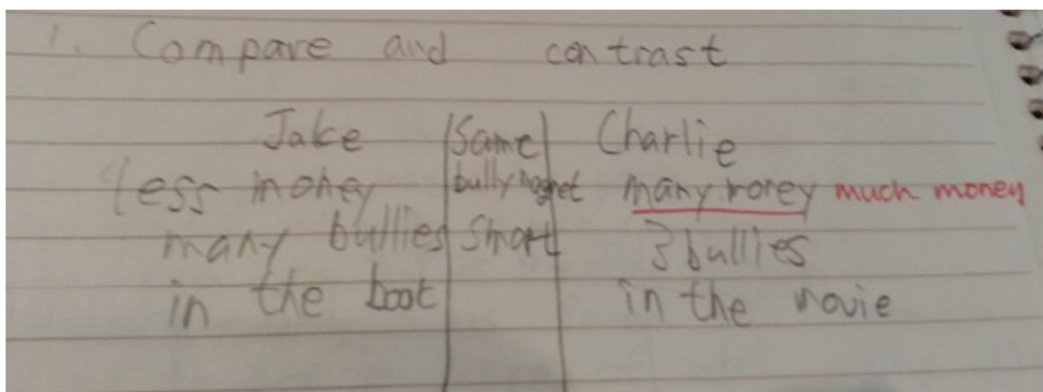 1. Compare and contrast
Jake Same Charlie
less money bully magnet many money much money
many bullies smart 3 bullies
in the book in the movie